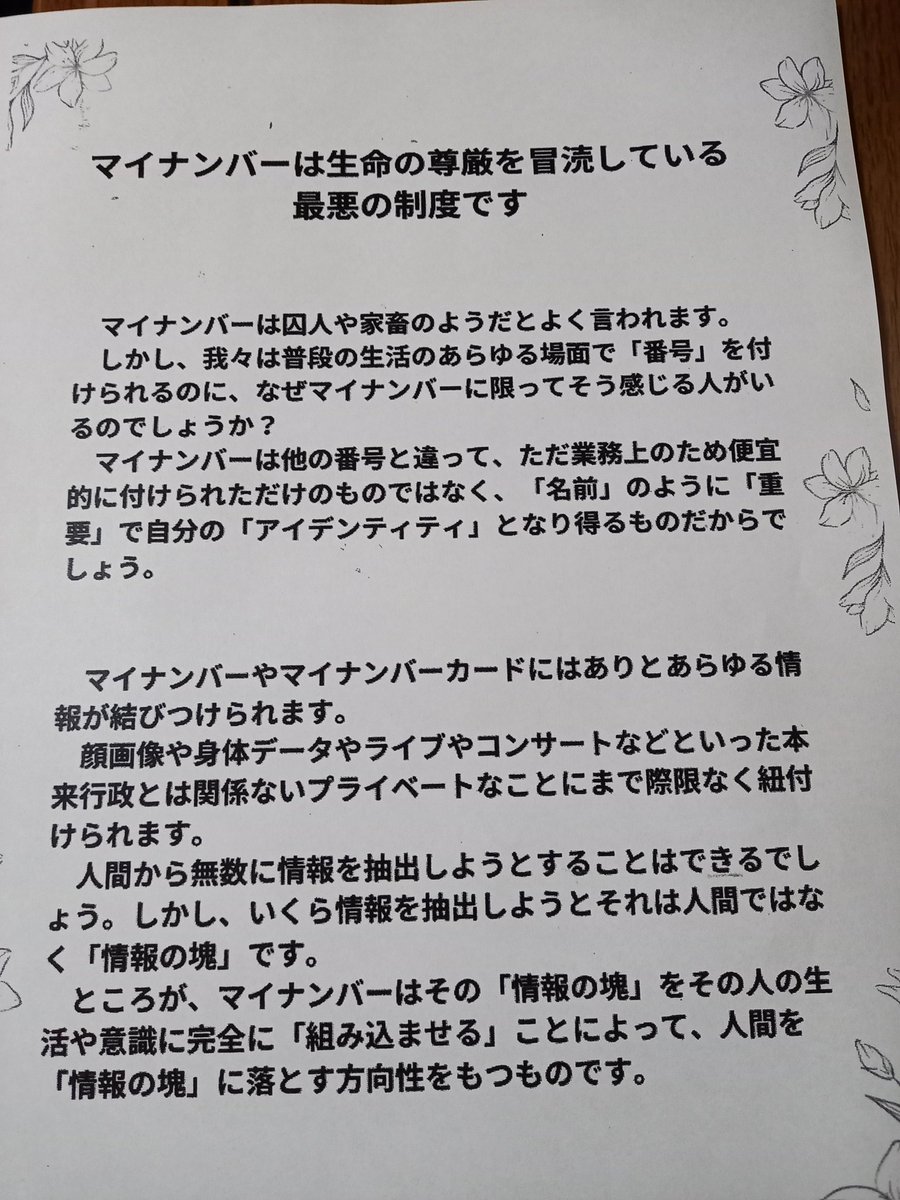 マイナンバーは生命の尊厳を冒涜している
最悪の制度です
マイナンバーは囚人や家畜のようだとよく言われます。
しかし、我々は普段の生活のあらゆる場面で「番号」を付
けられるのに、なぜマイナンバーに限ってそう感じる人がい
るのでしょうか？
マイナンバーは他の番号と違って、ただ業務上のため便宜
的に付けられただけのものではなく、「名前」のように「重
要」で自分の「アイデンティティ」となり得るものだからで
しょう。
マイナンバーやマイナンバーカードにはありとあらゆる情
報が結びつけられます。
顔画像や身体データやライブやコンサートなどといった本
来行政とは関係ないプライベートなことにまで際限なく紐付
けられます。
人間から無数に情報を抽出しようとすることはできるでし
ょう。しかし、いくら情報を抽出しようとそれは人間ではな
く「情報の塊」です。
ところが、マイナンバーはその「情報の塊」をその人の生
活や意識に完全に「組み込ませる」ことによって、人間を
「情報の塊」に落とす方向性をもつものです。